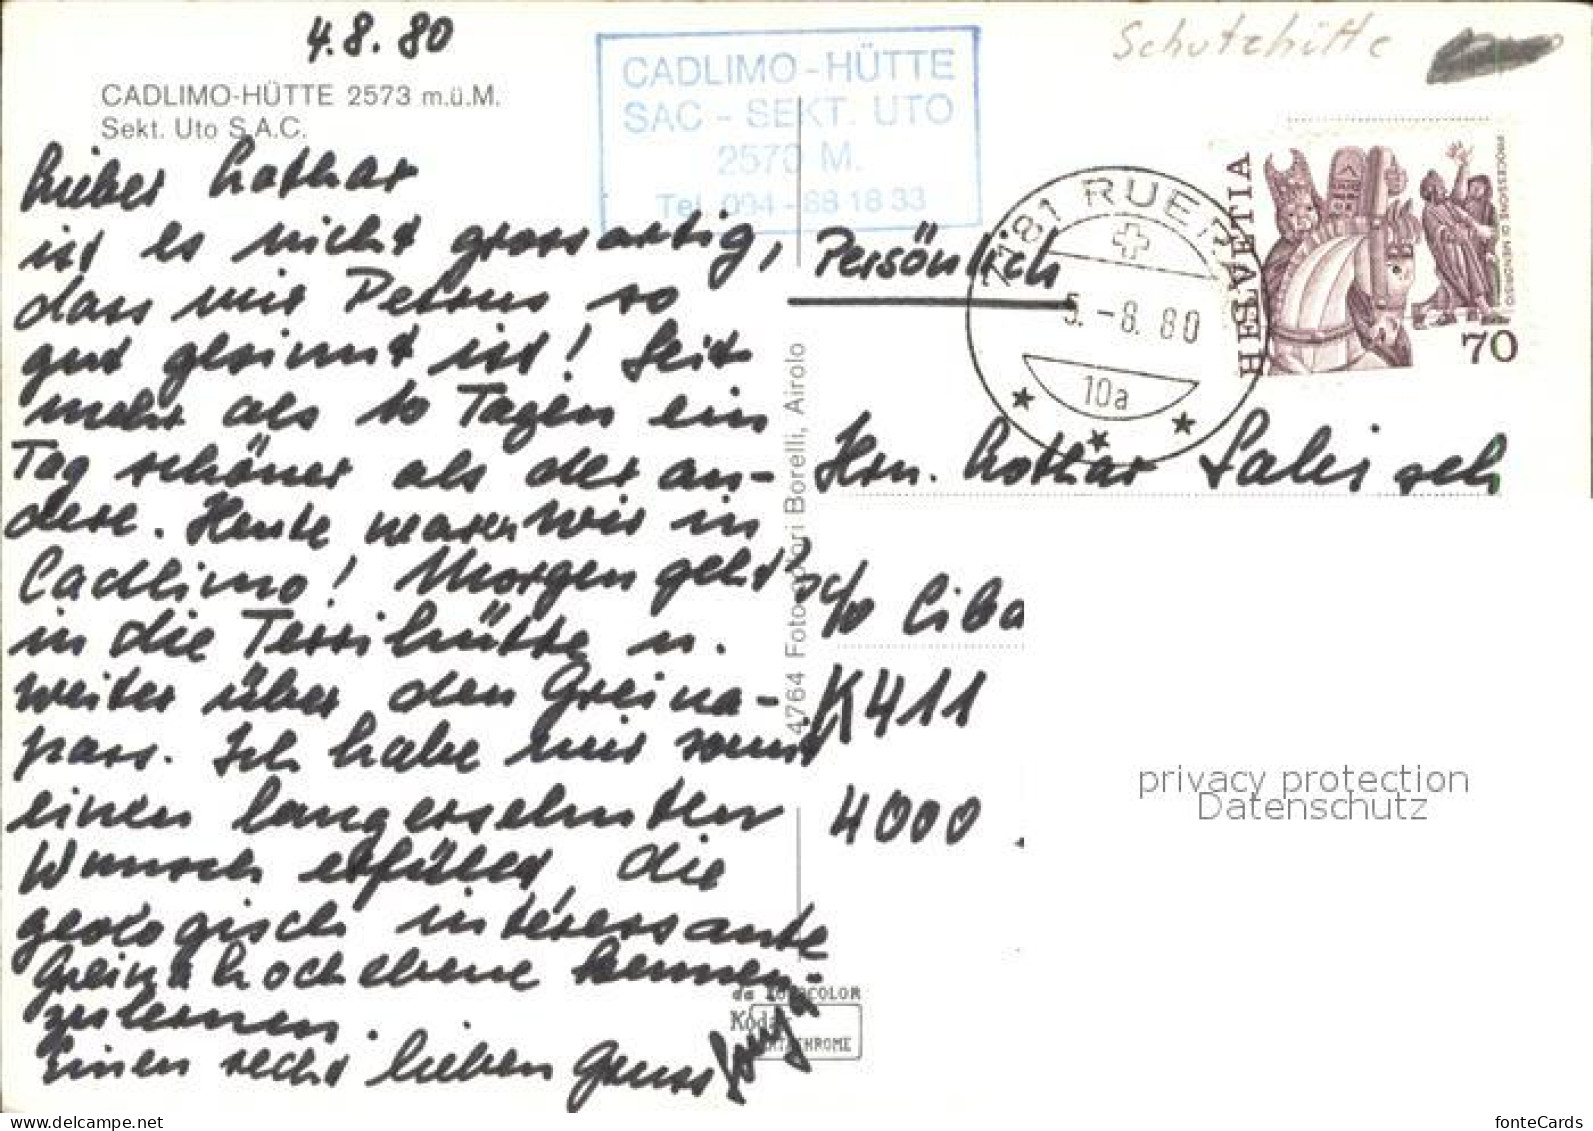 4.8.80
CADLIMO-HÜTTE 2573 m.ü.M.
Sekt. Uto S.A.C.
Lieber Lothar
ist es nicht grossartig,
dass mir Petrus so
gut gesinnt ist! Seit
mehr als 10 Tagen ein
Tag schöner als der an-
dere. Heute waren wir in
Cadlimo! Morgen geht's
in die Terrihütte u.
weiter über den Greina-
pass. Ich habe mir somit
einen langersehnten
Wunsch erfüllt, die
geologisch interessante
Greinahochebene kennen-
zulernen.
Einen recht lieben Gruss
CADLIMO-HÜTTE
SAC - SEKT. UTO
2570 M.
Tel. 094-88 18 33
4764 Fotocolori Borelli, Airolo
da FOTOCOLOR
Kodak
EKTACHROME
Schutzhütte
7181 RUER
5.-8.80
10a
HELVETIA
PROCESSIONE DI MENDRISIO
70
Persönlich
Hrn. Lothar Salisch
c/o Ciba
K411
4000
privacy protection
Datenschutz
www.delcampe.net
fonteCards